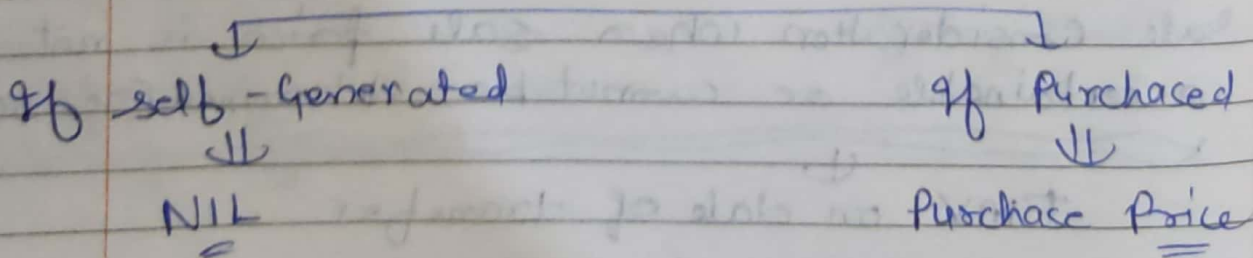 If self-Generated If Purchased
⇓ ⇓
NIL Purchase Price